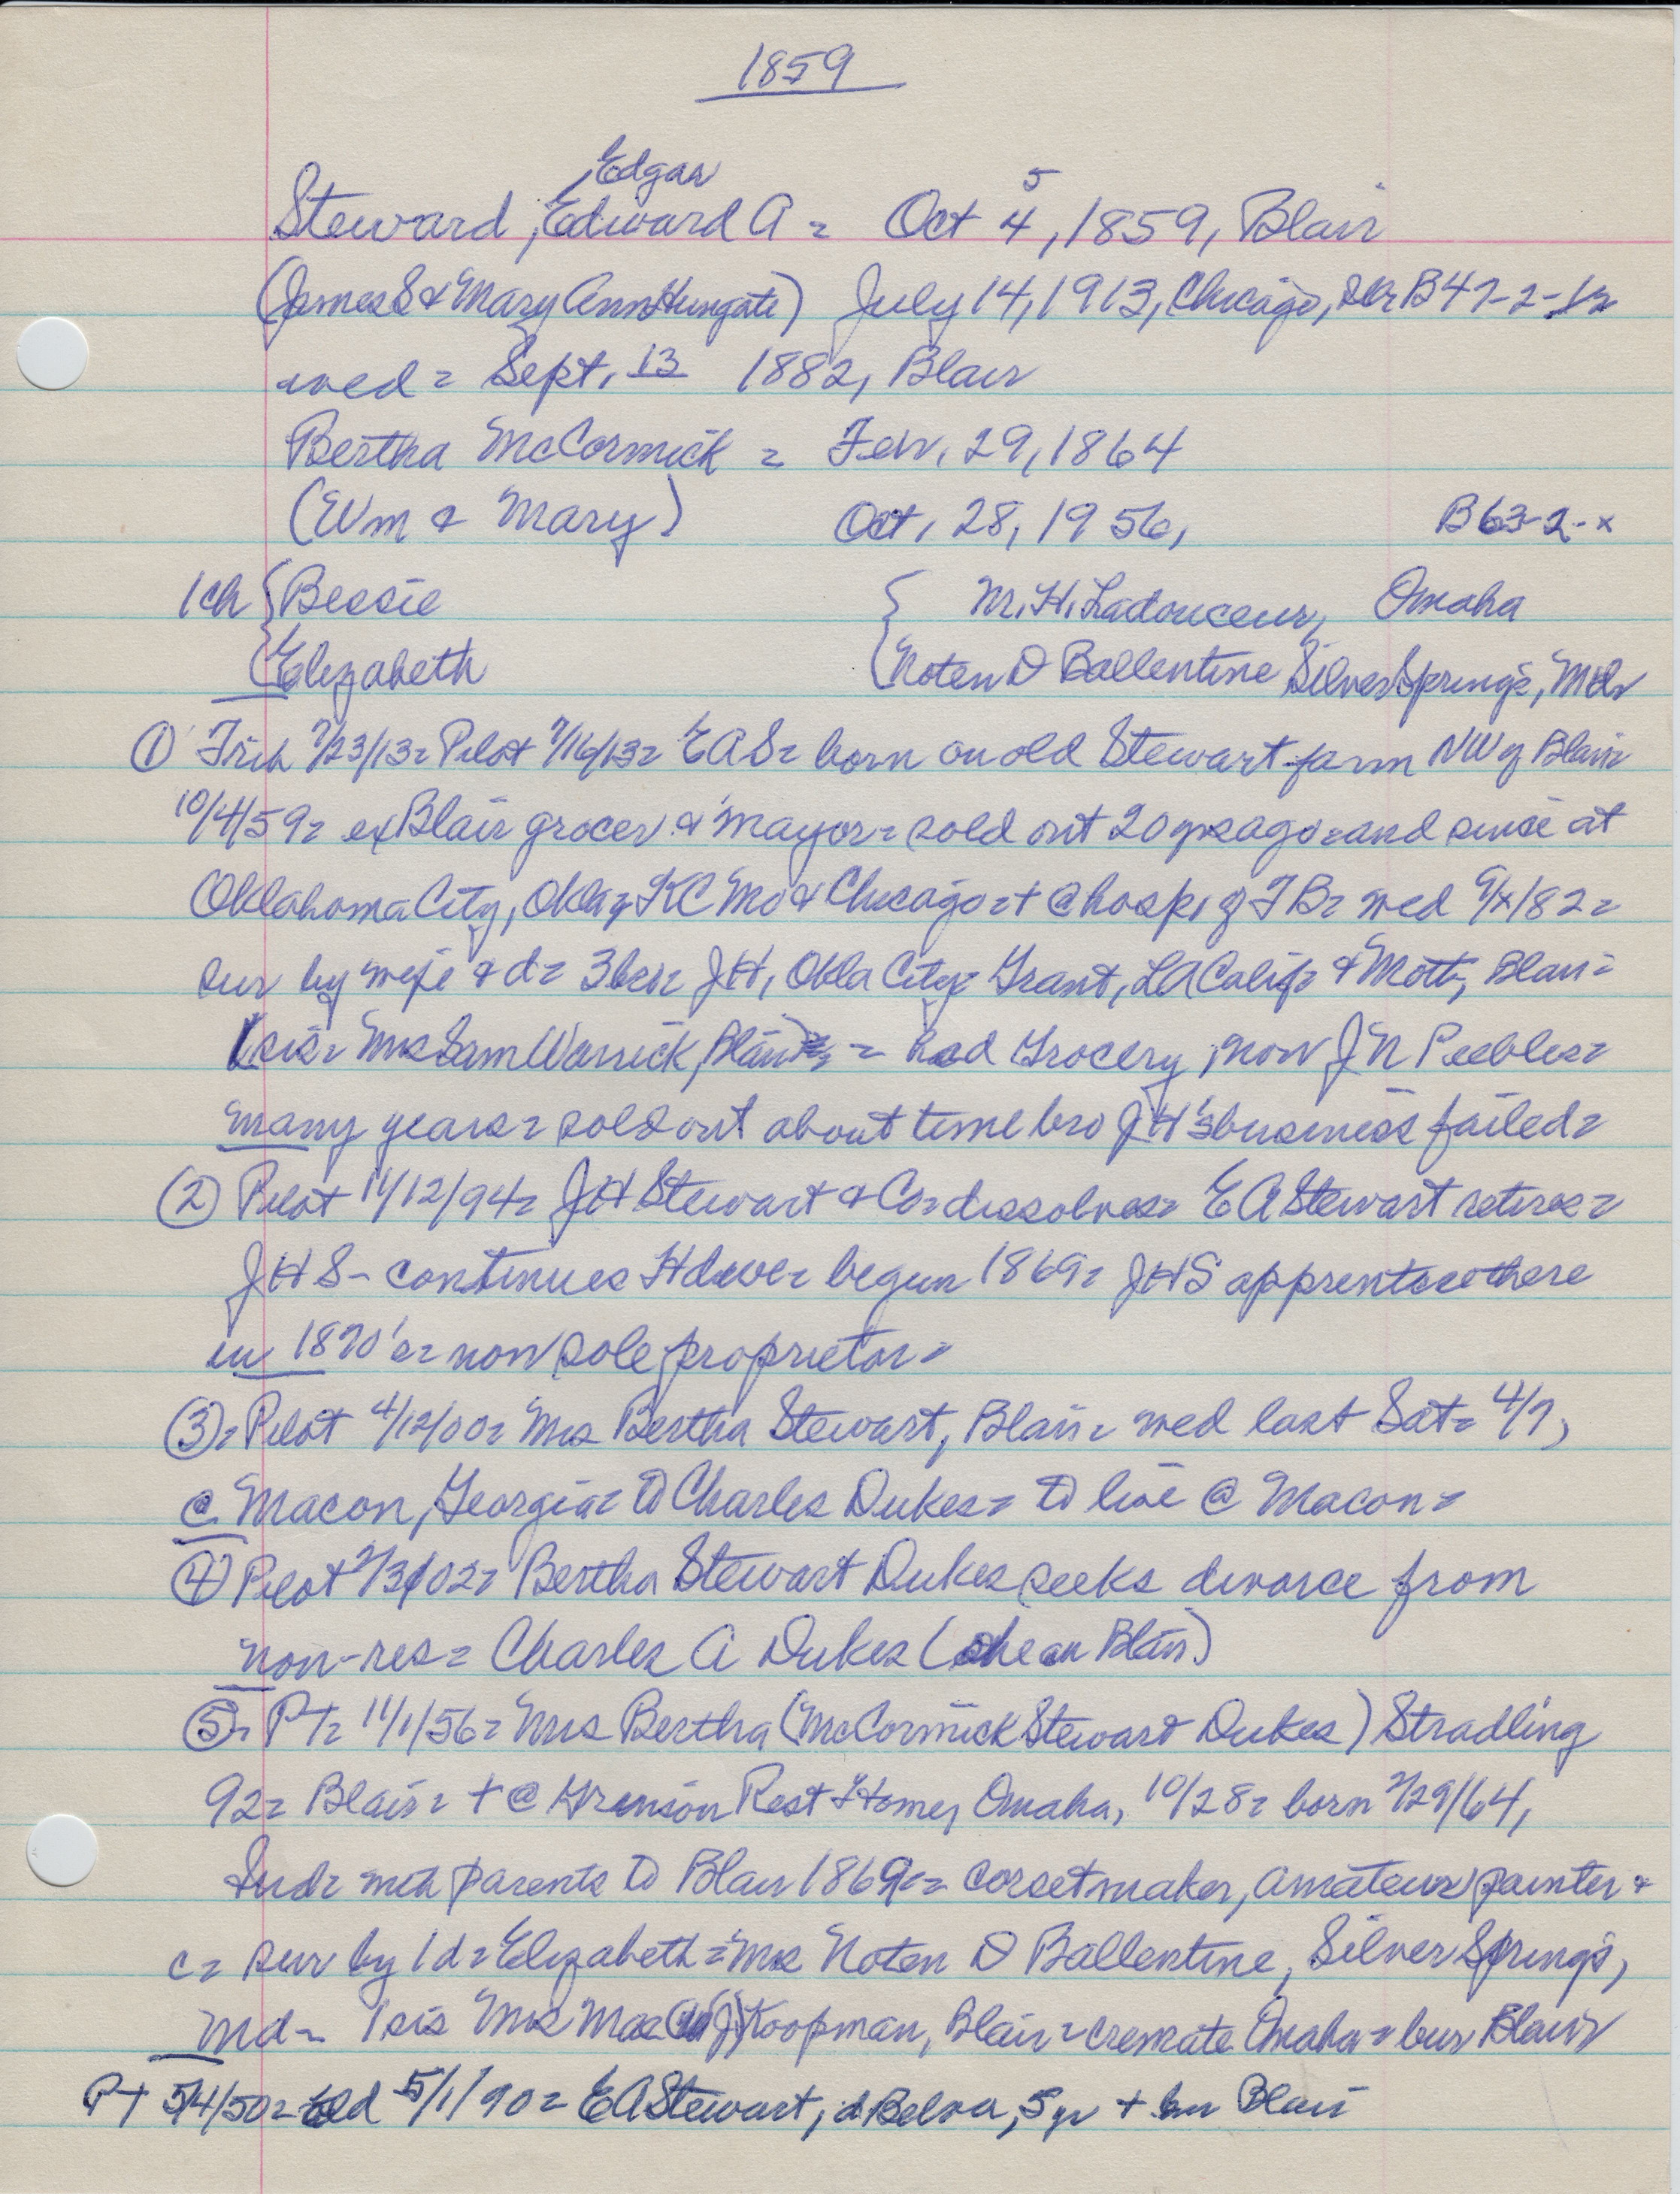 1859
Edgar
5
Steward, Edward A = Oct 4, 1859, Blair
(James S & Mary Ann Hungate) July 14, 1913, Chicago, B47-2-12
wed = Sept. 13 1882, Blair
Bertha McCormick = Feb. 29, 1864
(Wm & Mary) Oct, 28, 1956, B63-2-x
1ch { Bessie { M.H. Ladouceur, Omaha
{ Elizabeth { Noten D Ballentine Silver Springs, Md
① Trib 7/23/13 = Pilot 7/16/13 = EAS = born on old Stewart farm NW of Blair
10/4/59 = ex Blair grocer & mayor = sold out 20 yrs ago = and since at
Oklahoma City, Okla = KC Mo & Chicago = + @ hosp, of TB = wed 9/x/82 =
sur by wife & d = 3 bro = JH, Okla City = Grant, LA Calif = & Mott, Blair =
(sis = Mrs Sam Warrick, Blair) = had Grocery, now J N Peebles =
many years = sold out about time bro JH's business failed =
② Pilot 11/12/94 = JH Stewart & Co = dissolves = EA Stewart retires =
JHS - continues Hdwe = begun 1869 = JHS apprentice there
in 1870's = now sole proprietor =
③ = Pilot 4/12/00 = Mrs Bertha Stewart, Blair = wed last Sat = 4/7,
@ Macon, Georgia = to Charles Dukes = to live @ Macon =
④ Pilot 7/3/02 = Bertha Stewart Dukes seeks divorce from
non-res = Charles A Dukes (she in Blair)
⑤ = PT = 11/1/56 = Mrs Bertha (McCormick Stewart Dukes) Stradling
92 = Blair = + @ Rest Home, Omaha, 10/28 = born 2/29/64,
Ind = with parents to Blair 1869 = corsetmaker, amateur painter &
c = sur by 1 d = Elizabeth = Mrs Noten D Ballentine, Silver Springs,
Md = 1 sis Mrs Mae Koopman, Blair = cremate Omaha = bur Blair
PT 5/4/50 = 5/1/90 = EA Stewart, d Belva, 5 yr + bur Blair